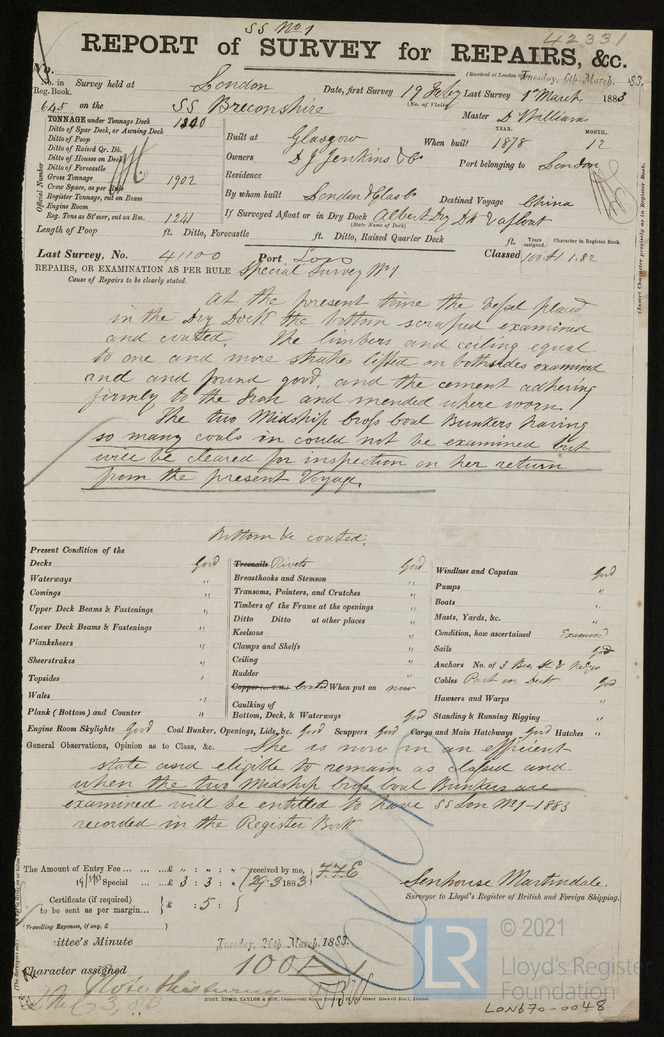 SS No 1
42331
REPORT of SURVEY for REPAIRS, &c.
(Received at London Tuesday, 6th March, 83.
No. in Reg. Book.
Survey held at London Date, first Survey 19 Feby Last Survey 1st March 1883
(No. of Visits)
645 on the SS Breconshire Master D Williams
TONNAGE under Tonnage Deck 1240
Ditto of Spar Deck, or Awning Deck
Ditto of Poop
Ditto of Raised Qr. Dk.
Ditto of Houses on Deck
Ditto of Forecastle
Gross Tonnage 1902
Crew Space, as per Rule
Register Tonnage, cut on Beam
Engine Room
Reg. Tons as St'mer, cut on Bm. 1241
Official Number
Built at Glasgow When built YEAR. 1878 MONTH. 12
Owners D J Jenkins & Co Port belonging to London
Residence
By whom built London & Glas Co Destined Voyage China
If Surveyed Afloat or in Dry Dock Albert Dry Dk & afloat
(State Name of Dock)
Length of Poop ft. Ditto, Forecastle ft. Ditto, Raised Quarter Deck ft.
Years assigned. Character in Register Book.
Last Survey, No. 41100 Port Lon Classed 100A1 1.82
(Insert Character precisely as in Register Book.
REPAIRS, OR EXAMINATION AS PER RULE Special Survey No 1
Cause of Repairs to be clearly stated.
At the present time the vessel placed
in the Dry Dock the bottom scraped examined
and coated. The limbers and ceiling equal
to one and more strakes lifted on both sides examined
and and found good, and the cement adhering
firmly to the Iron and mended where worn.
The two Midship Cross coal Bunkers having
so many coals in could not be examined but
will be cleared for inspection on her return
from the present Voyage.
Bottom be coated.
Present Condition of the
Decks Good
Waterways "
Comings "
Upper Deck Beams & Fastenings "
Lower Deck Beams & Fastenings "
Planksheers "
Sheerstrakes "
Topsides "
Wales "
Plank (Bottom) and Counter "
Treenails Rivets Good
Breasthooks and Stemson "
Transoms, Pointers, and Crutches "
Timbers of the Frame at the openings "
Ditto Ditto at other places "
Keelsons "
Clamps and Shelfs "
Ceiling "
Rudder "
Copper (or Y.M.) Coated When put on now
Caulking of
Bottom, Deck, & Waterways Good
Windlass and Capstan Good
Pumps "
Boats "
Masts, Yards, &c. "
Condition, how ascertained Examined
Sails Good
Anchors No. of 3 Bro, St. & Kedge
Cables Part on Deck Good
Hawsers and Warps "
Standing & Running Rigging "
Engine Room Skylights Good Coal Bunker, Openings, Lids, &c. Good Scuppers Good Cargo and Main Hatchways Good Hatches "
General Observations, Opinion as to Class, &c. She is now in an efficient
state and eligible to remain as classed and
when the two Midship Cross coal Bunkers are
examined will be entitled to have SS Lon No 1-1883
recorded in the Register Book
The Amount of Entry Fee ... £ " : " : "
Special ... £ 3 : 3 : "
received by me, F.F.E
(29.3 1883)
Certificate (if required)
to be sent as per margin...
£ : 5 :
(Travelling Expenses, if any, £
Senhouse Martindale.
Surveyor to Lloyd's Register of British and Foreign Shipping.
ittee's Minute Tuesday, 20th March, 1883.
Character assigned 100A
Note this survey
ROBT. EDMD. TAYLOR & SON, Commercial Steam Printers, London.
LR
© 2021
Lloyd's Register
Foundation
LON670-0048